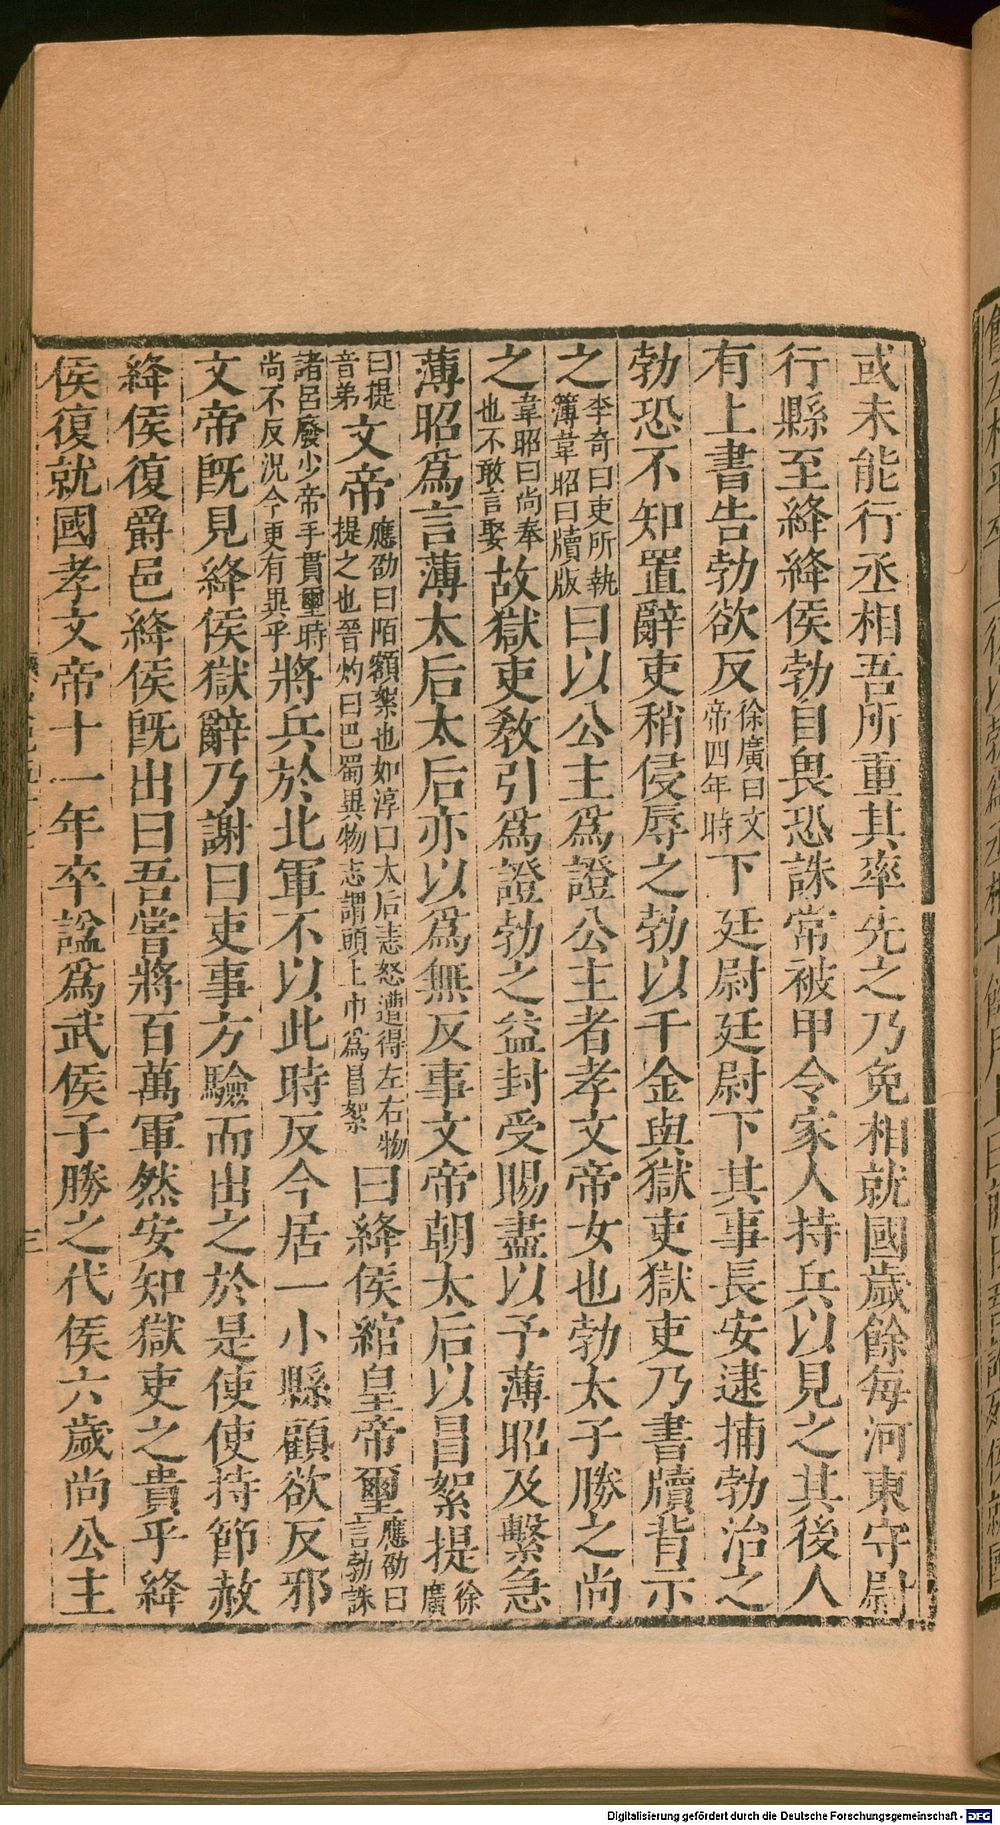 或未能行丞相吾所重其率先之乃免相就國歲餘每河東守尉
行縣至絳絳侯勃自畏恐誅常被甲令家人持兵以見之其後人
有上書告勃欲反徐廣曰文帝四年時下廷尉廷尉下其事長安逮捕勃治之
勃恐不知置辭吏稍侵辱之勃以千金與獄吏獄吏乃書牘背示
之李奇曰吏所執簿韋昭曰牘版曰以公主爲證公主者孝文帝女也勃太子勝之尚
之韋昭曰尚奉也不敢言娶故獄吏教引爲證勃之益封受賜盡以予薄昭及繫急
薄昭爲言薄太后太后亦以爲無反事文帝朝太后以昌絮提徐廣
曰提音弟文帝應劭曰陌額絮也如淳曰太后恚怒遭得左右物提之也晉灼曰巴蜀異物志謂頭上巾爲昌絮曰絳侯綰皇帝璽應劭曰言勃誅
諸呂廢少帝手貫璽時尚不反況今更有異乎將兵於北軍不以此時反今居一小縣顧欲反邪
文帝旣見絳侯獄辭乃謝曰吏事方驗而出之於是使使持節赦
絳侯復爵邑絳侯旣出曰吾嘗將百萬軍然安知獄吏之貴乎絳
侯復就國孝文帝十一年卒謚爲武侯子勝之代侯六歲尚公主
三
Digitalisierung gefördert durch die Deutsche Forschungsgemeinschaft - DFG